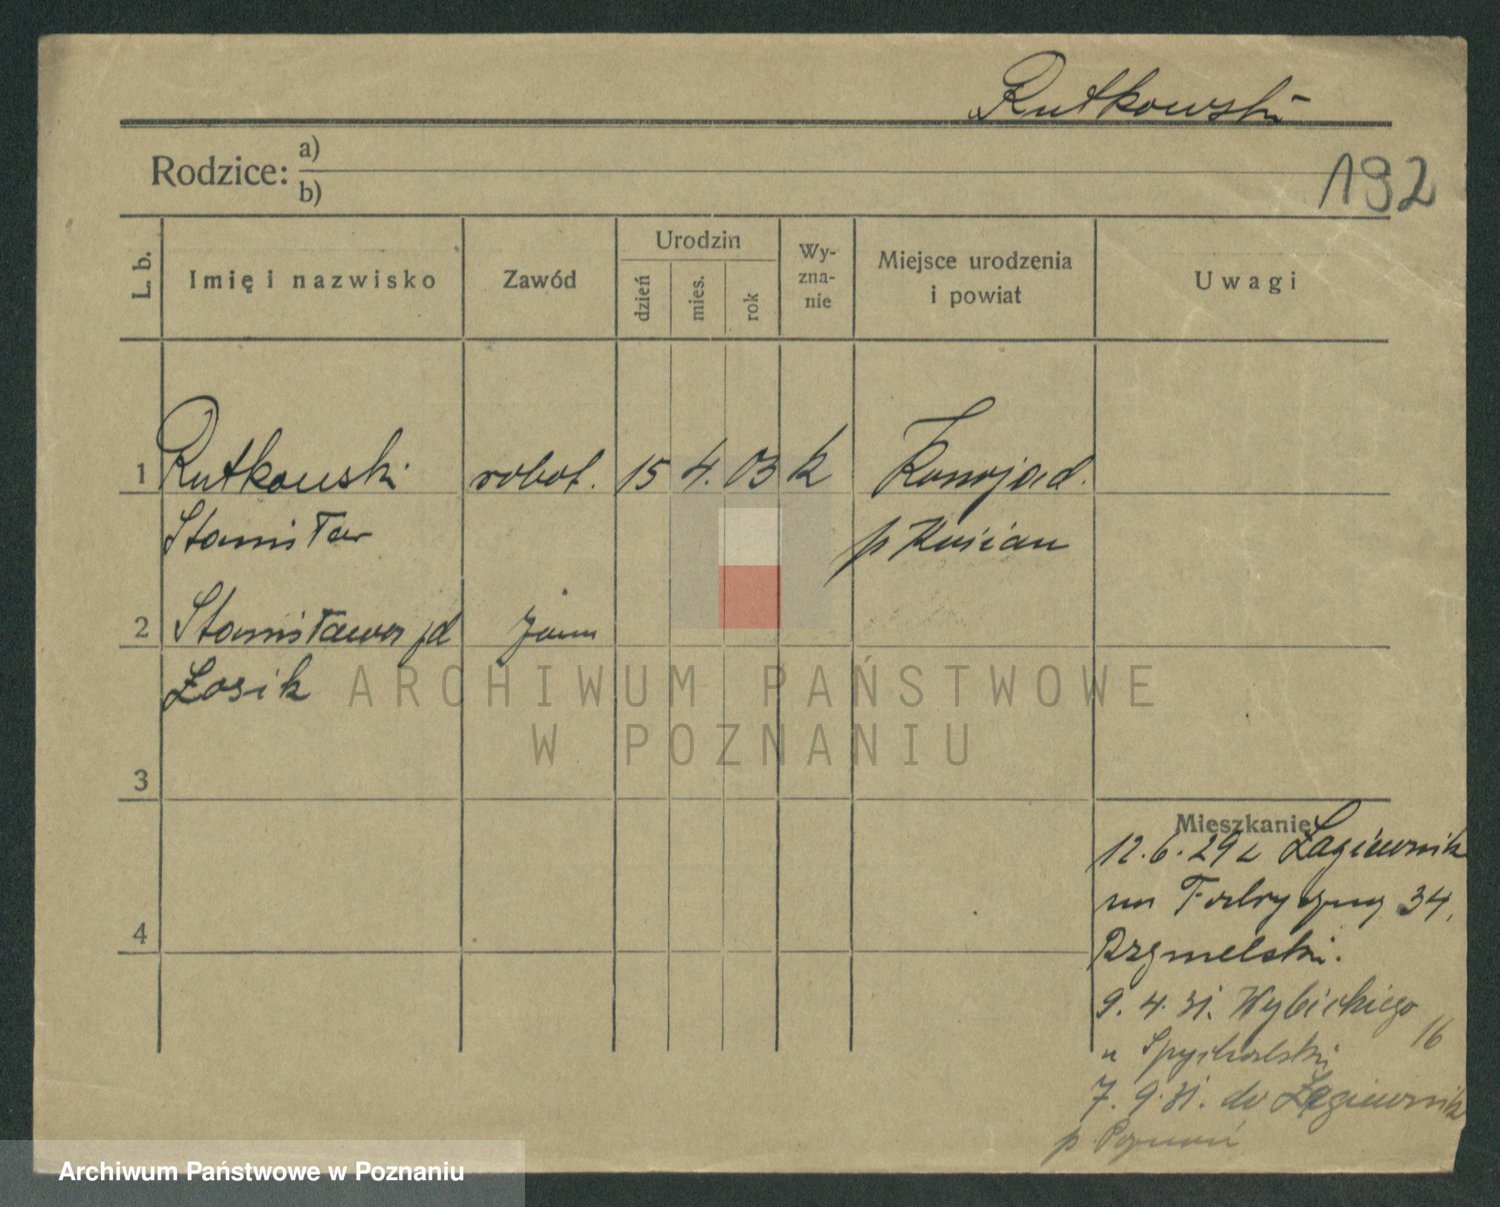 Rutkowski
192
Rodzice: a)
b)
L. b.
Imię i nazwisko
Zawód
Urodzin
dzień
mies.
rok
Wy-
zna-
nie
Miejsce urodzenia
i powiat
Uwagi
1 Rutkowski robot. 15 4. 03 k Konojad.
Stanisław p Kościan
2 Stanisława jd
Łosik
3
4
Mieszkanie
12.6.29 z Łagiewnik
na Fabryczną 34,
9. 4. 31. Wybickiego
16
u Spychalski
7. 9. 31. do Łagiewnik
p Poznań
ARCHIWUM PAŃSTWOWE
W POZNANIU
Archiwum Państwowe w Poznaniu